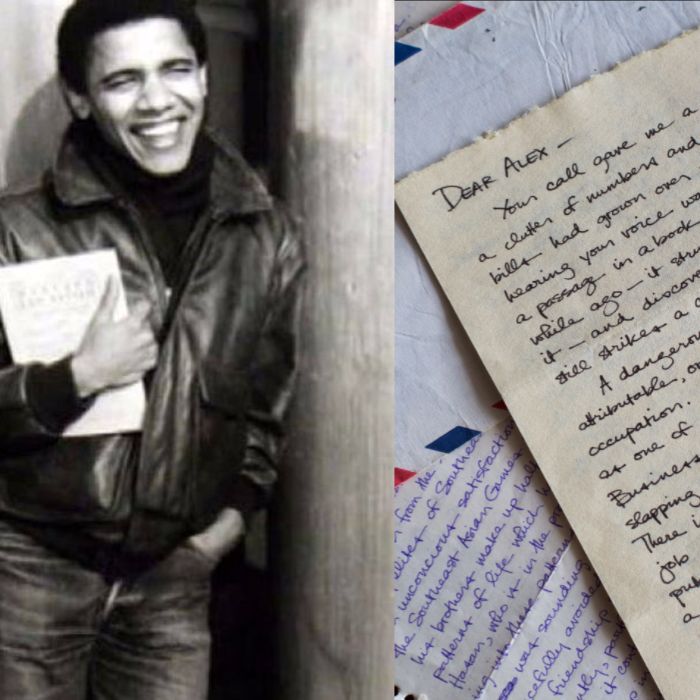 DEAR ALEX –
Your call gave me a
a clutter of numbers and
bills had grown over
hearing your voice wa
a passage in a book
while ago – it stru
it – and discov
still strikes a
A dangerou
attributable, or
occupation.
at one of
Business
slapping
There i
job
pu
a
from the
elites of Southea
unconscious satisfaction
the Southeast Asian Games
his brothers make up half
patterns of life which h
Hasan, who is in the pr
ing into these pattern
was sounding
cefully avoide
friendship